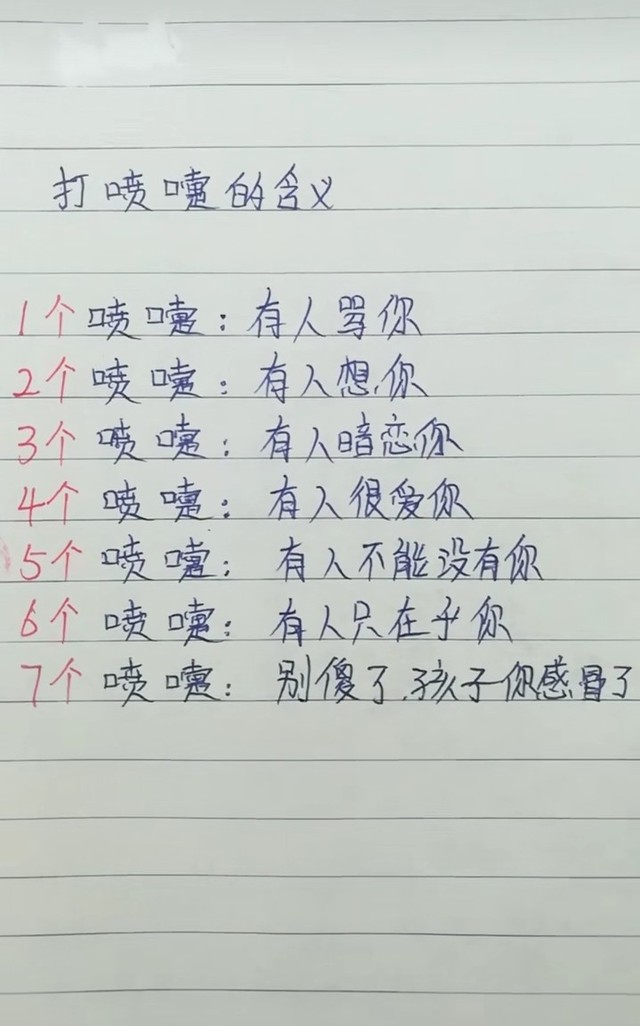 打喷嚏的含义
1个喷嚏：有人骂你
2个喷嚏：有人想你
3个喷嚏：有人暗恋你
4个喷嚏：有人很爱你
5个喷嚏：有人不能没有你
6个喷嚏：有人只在乎你
7个喷嚏：别傻了、孩子你感冒了